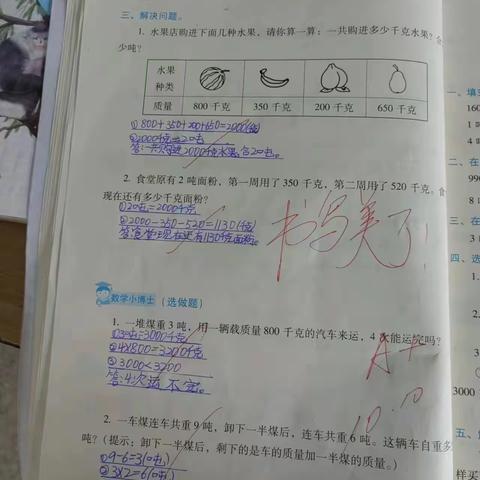 三、解决问题。
1. 水果店购进下面几种水果，请你算一算：一共购进多少千克水果？合
少吨？
水果种类
质量 800 千克 350 千克 200 千克 650 千克
①800+350+200+650=2000(千克)
②2000千克=20吨
答:一共购进2000千克水果,合20吨。
2. 食堂原有 2 吨面粉，第一周用了 350 千克，第二周用了 520 千克。食
现在还有多少千克面粉？
①20吨=2000千克
②2000-350-520=1130(千克)
答:食堂现在还有1130千克面粉。
书写美了
数学小博士 （选做题）
1. 一堆煤重 3 吨，用一辆载质量 800 千克的汽车来运，4 次能运完吗？
①30吨=3000千克
②4×800=3200千克
③3000<3200
答:4次运不完。
A+
10.10
2. 一车煤连车共重 9 吨，卸下一半煤后，连车共重 6 吨。这辆车自重多
吨？（提示：卸下一半煤后，剩下的是车的质量加一半煤的质量。）
①9-6=3(吨)
②3×2=6(吨)
一、填
160
1 吨
二、在
90
8 吨
三、在
四、选
1.
2.
3.
3000
五、
样买